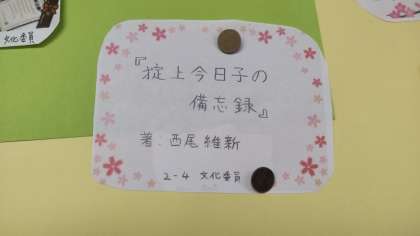 文化委員
『掟上今日子の
備忘録』
著.西尾維新
2-4 文化委員